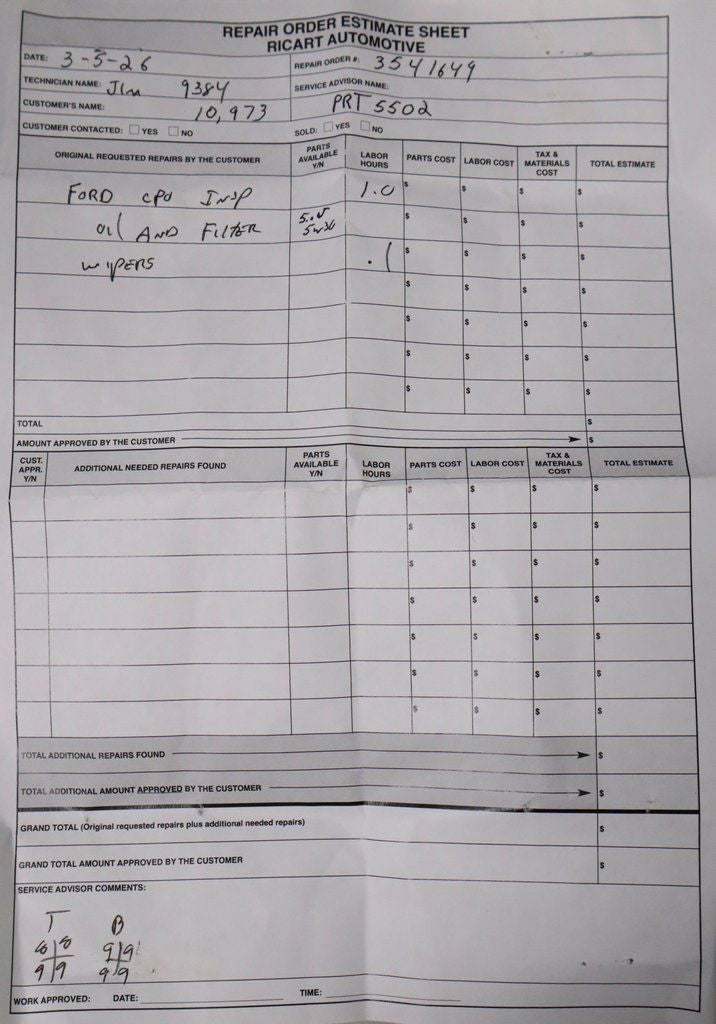 REPAIR ORDER ESTIMATE SHEET
RICART AUTOMOTIVE
DATE: 3-5-26
REPAIR ORDER #: 3541649
TECHNICIAN NAME: Jim 9384
SERVICE ADVISOR NAME:
CUSTOMER'S NAME: 10,973
PRT 5502
CUSTOMER CONTACTED: YES NO
SOLD: YES NO
ORIGINAL REQUESTED REPAIRS BY THE CUSTOMER PARTS AVAILABLE Y/N LABOR HOURS PARTS COST LABOR COST TAX & MATERIALS COST TOTAL ESTIMATE
FORD CPO INSP 1.0 $ $ $ $
oil AND FILTER 5w30 $ $ $ $
wipers .1 $ $ $ $
$ $ $ $
$ $ $ $
$ $ $ $
$ $ $ $
TOTAL $
AMOUNT APPROVED BY THE CUSTOMER $
CUST. APPR. Y/N ADDITIONAL NEEDED REPAIRS FOUND PARTS AVAILABLE Y/N LABOR HOURS PARTS COST LABOR COST TAX & MATERIALS COST TOTAL ESTIMATE
$ $ $ $
$ $ $ $
$ $ $ $
$ $ $ $
$ $ $ $
$ $ $ $
$ $ $ $
TOTAL ADDITIONAL REPAIRS FOUND $
TOTAL ADDITIONAL AMOUNT APPROVED BY THE CUSTOMER $
GRAND TOTAL (Original requested repairs plus additional needed repairs) $
GRAND TOTAL AMOUNT APPROVED BY THE CUSTOMER $
SERVICE ADVISOR COMMENTS:
T B
8 8 9 9
9 9 9 9
WORK APPROVED: DATE: TIME: